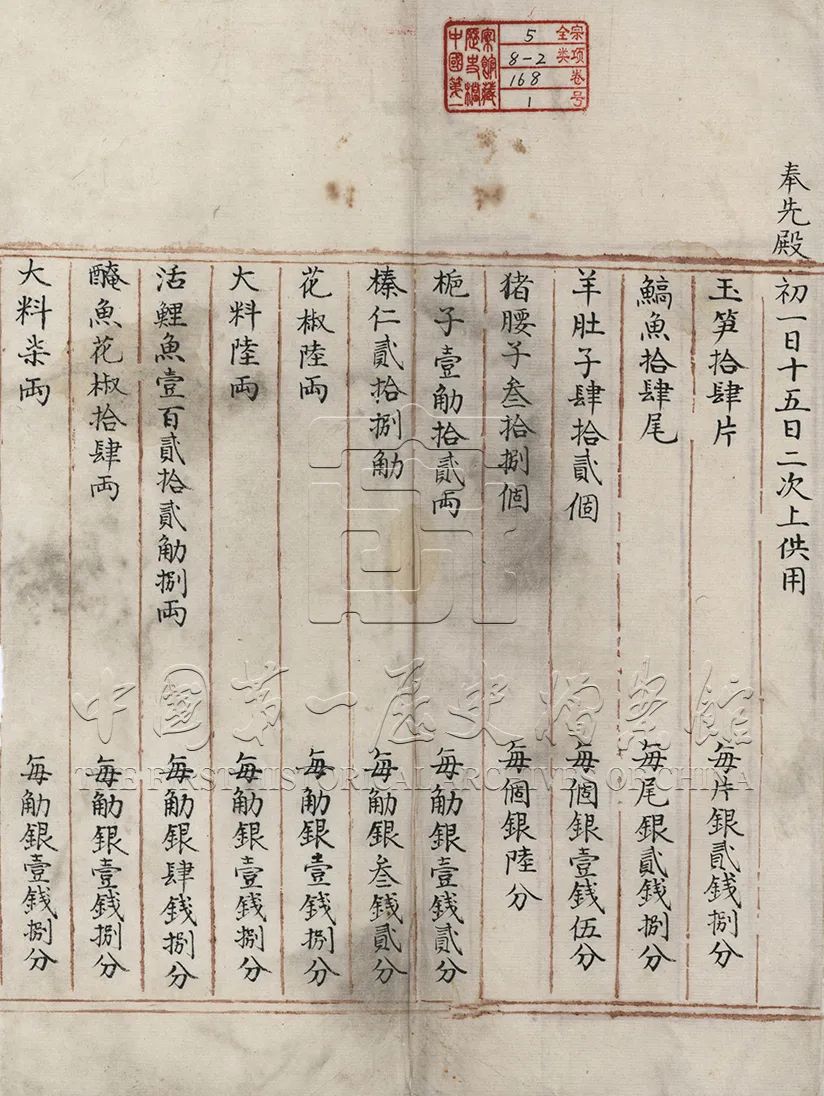 宗 5 全
项 8-2 类
卷 168
号 1
中國第一
歷史檔
案館藏
奉先殿
初一日十五日二次上供用
玉笋拾肆片 每片銀貳錢捌分
鰝魚拾肆尾 每尾銀貳錢捌分
羊肚子肆拾貳個 每個銀壹錢伍分
猪腰子叁拾捌個 每個銀陸分
梔子壹觔拾貳両 每觔銀壹錢貳分
榛仁貳拾捌觔 每觔銀叁錢貳分
花椒陸両 每觔銀壹錢捌分
大料陸両 每觔銀壹錢捌分
活鯉魚壹百貳拾貳觔捌両 每觔銀肆錢捌分
醃魚花椒拾肆両 每觔銀壹錢捌分
大料柒両 每觔銀壹錢捌分
中國第一歷史檔案館
THE FIRST HISTORICAL ARCHIVES OF CHINA